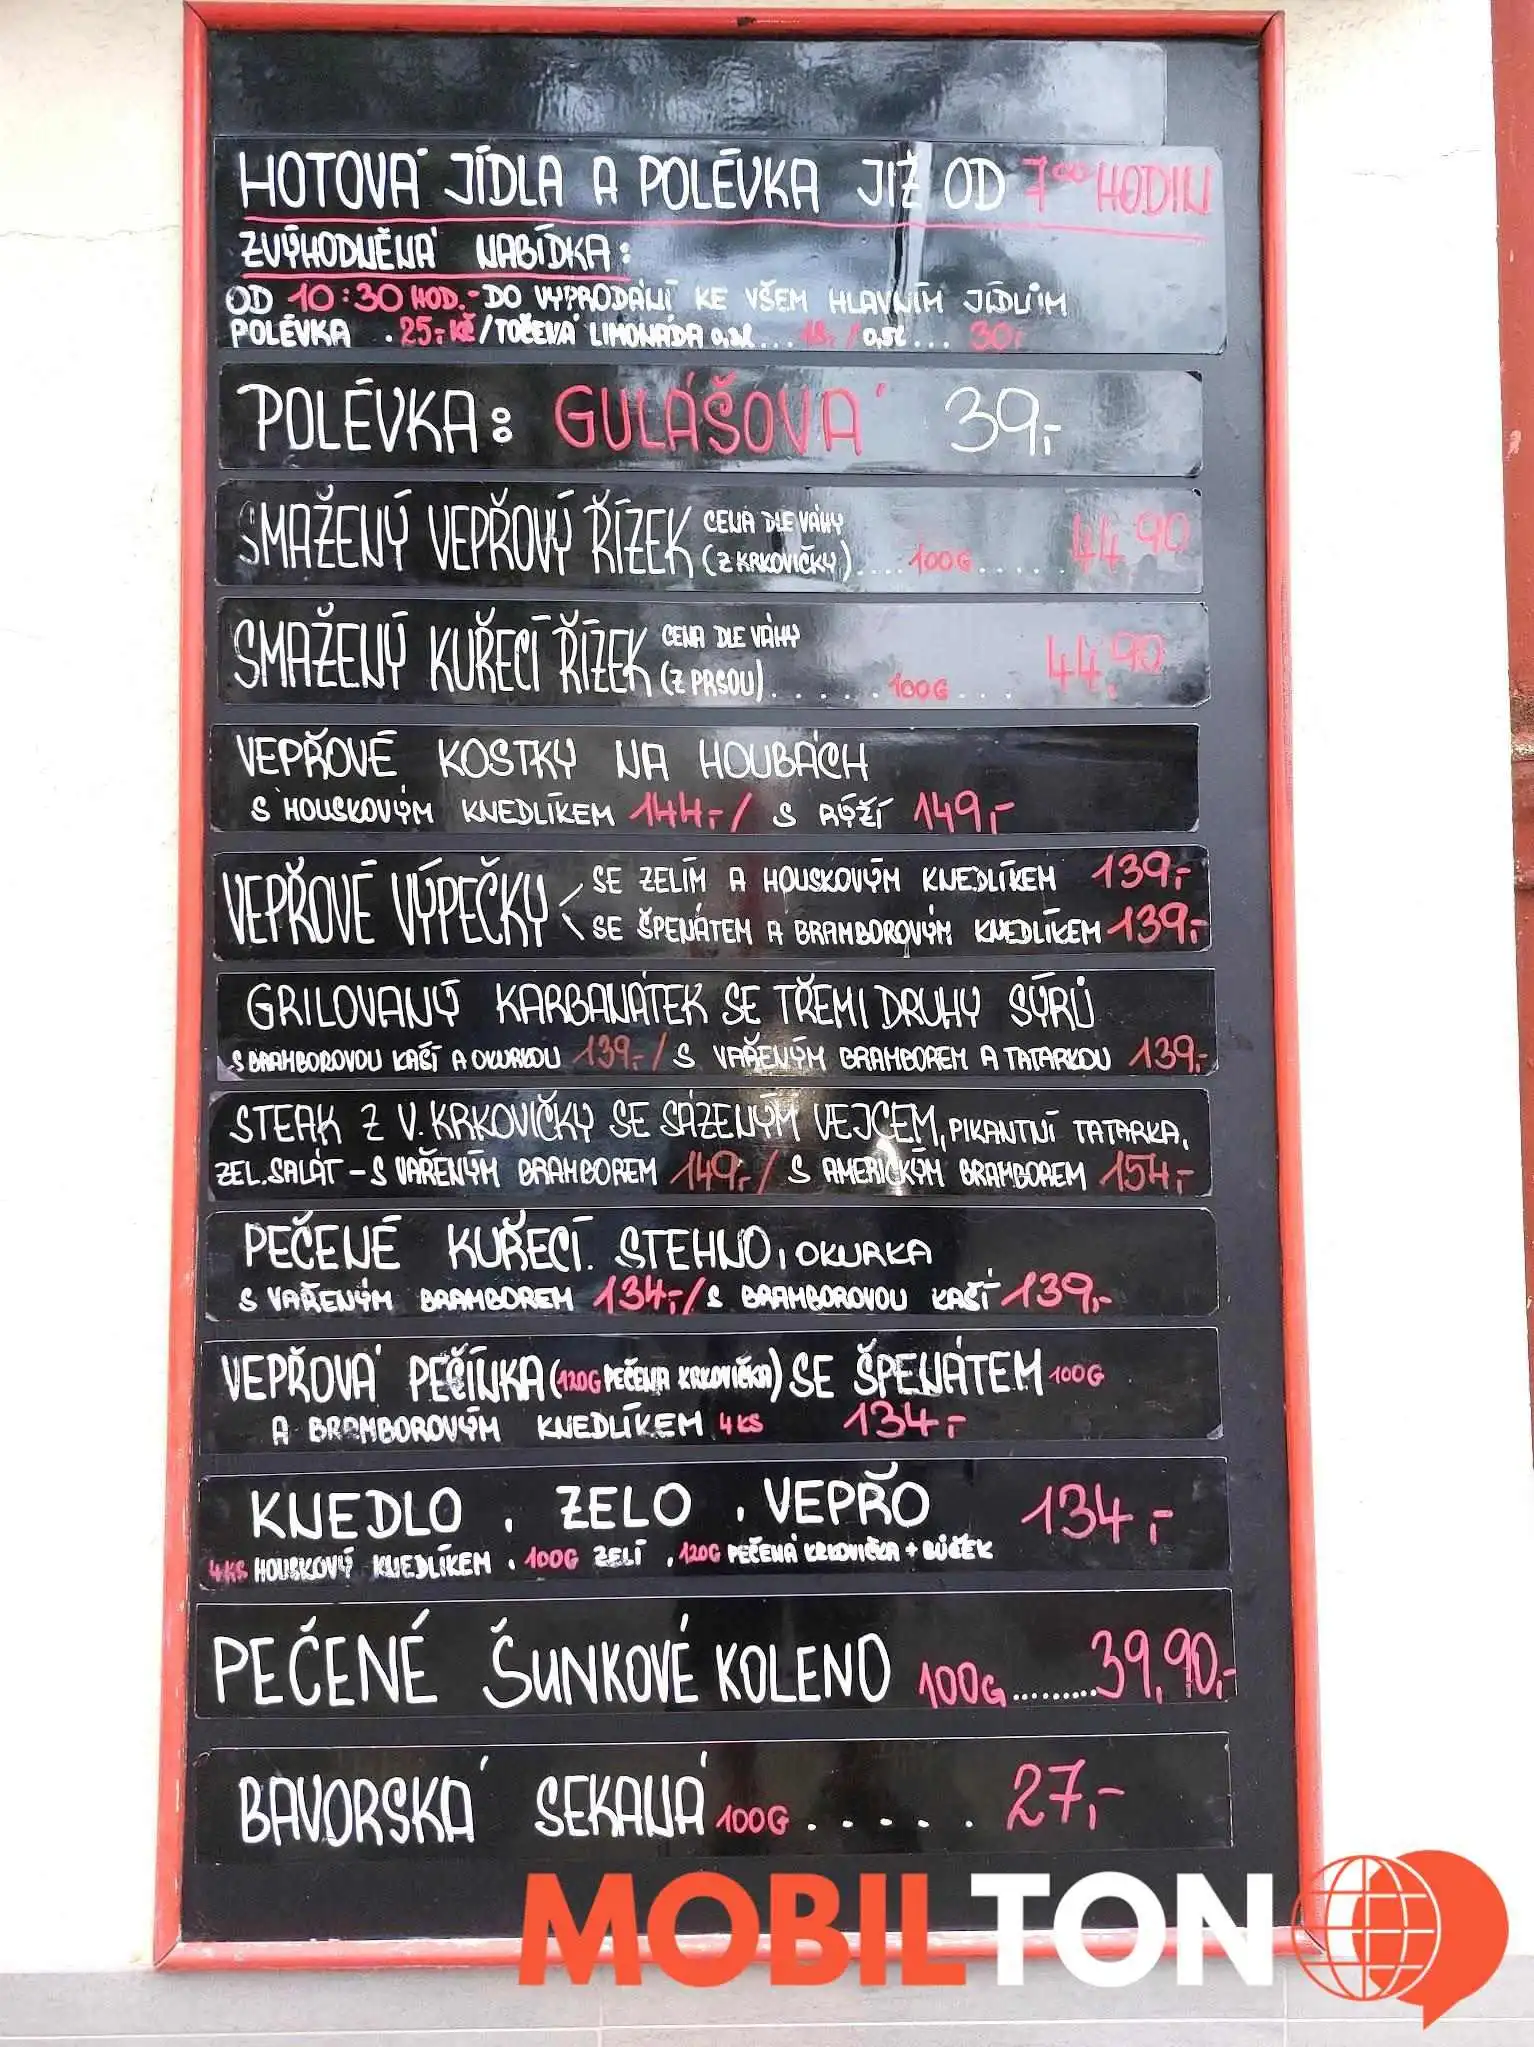 HOTOVÁ JÍDLA A POLÉVKA JIŽ OD 7⁰⁰ HODIN
ZVÝHODNĚNÁ NABÍDKA:
OD 10:30 HOD.- DO VYPRODÁNÍ KE VŠEM HLAVNÍM JÍDLŮM
POLÉVKA . 25,- KČ / TOČENÁ LIMONÁDA 0,3L... / 0,5L... 30,-
POLÉVKA: GULÁŠOVÁ 39,-
SMAŽENÝ VEPŘOVÝ ŘÍZEK CENA DLE VÁHY
(Z KRKOVIČKY)....100G.....44,90
SMAŽENÝ KUŘECÍ ŘÍZEK CENA DLE VÁHY
(Z PRSOU).......100G... 44,90
VEPŘOVÉ KOSTKY NA HOUBÁCH
S HOUSKOVÝM KNEDLÍKEM 144,- / S RÝŽÍ 149,-
VEPŘOVÉ VÝPEČKY < SE ZELÍM A HOUSKOVÝM KNEDLÍKEM 139,-
SE ŠPENÁTEM A BRAMBOROVÝM KNEDLÍKEM 139,-
GRILOVANÝ KARBANÁTEK SE TŘEMI DRUHY SÝRŮ
S BRAMBOROVOU KAŠÍ A OKURKOU 139,- / S VAŘENÝM BRAMBOREM A TATARKOU 139,-
STEAK Z V. KRKOVIČKY SE SÁZENÝM VEJCEM, PIKANTNÍ TATARKA,
ZEL. SALÁT - S VAŘENÝM BRAMBOREM 149,- / S AMERICKÝM BRAMBOREM 154,-
PEČENÉ KUŘECÍ. STEHNO, OKURKA
S VAŘENÝM BRAMBOREM 134,- / S BRAMBOROVOU KAŠÍ 139,-
VEPŘOVÁ PEČÍNKA (120G PEČENÁ KRKOVIČKA) SE ŠPENÁTEM 100G
A BRAMBOROVÝM KNEDLÍKEM 4KS 134,-
KNEDLO , ZELO , VEPŘO 134,-
4KS HOUSKOVÝ KNEDLÍKEM , 100G ZELÍ , 120G PEČENÁ KRKOVIČKA + BŮČEK
PEČENÉ ŠUNKOVÉ KOLENO 100G.........39,90,-
BAVORSKÁ SEKANÁ 100G...... 27,-
MOBILTON